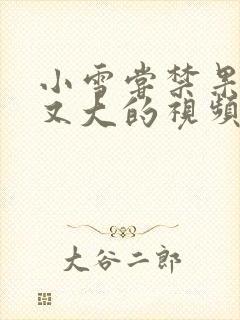 小雪嘗禁果
又大的視頻
大谷二郎